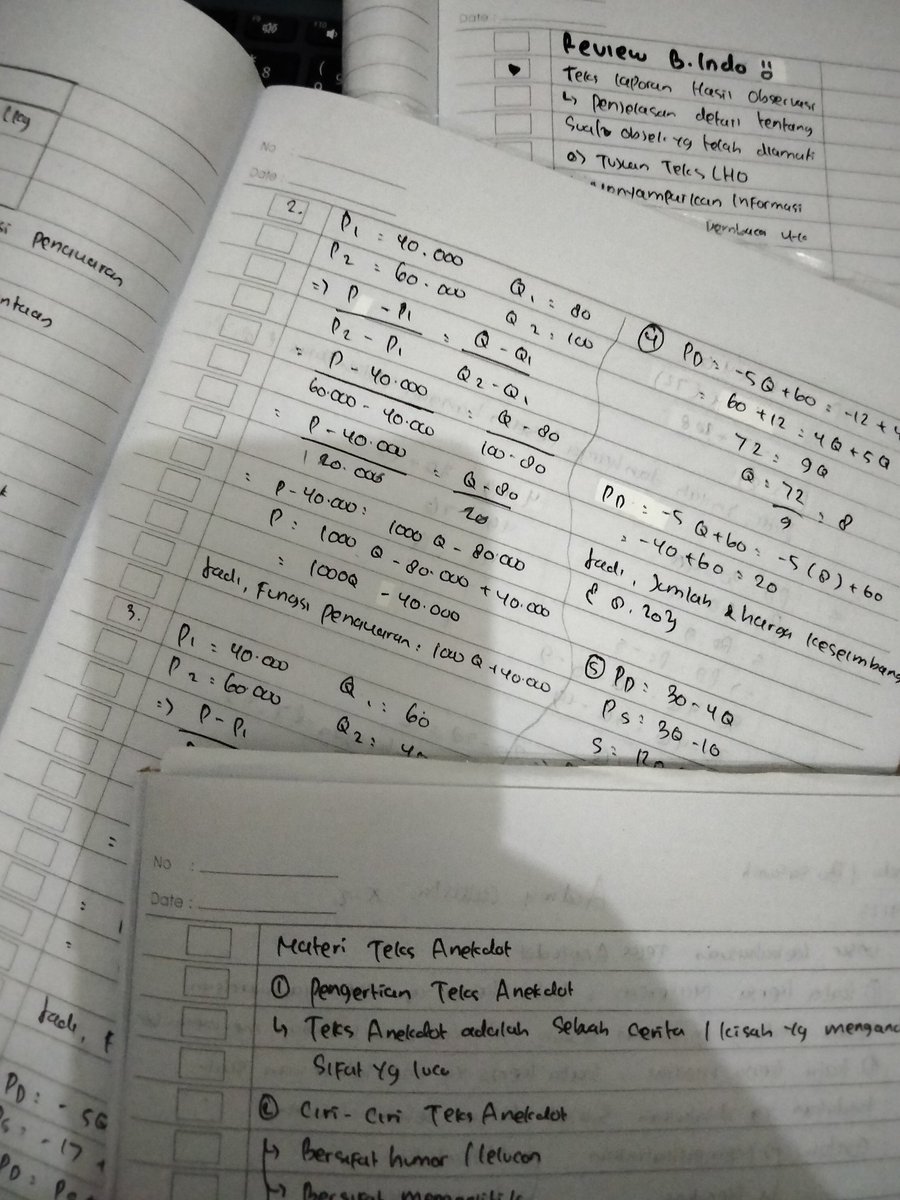 Date :
Review B.Indo
Teks Laporan Hasil Observasi
↳ Penjelasan detail tentang
Suatu objek yg telah diamati
0) Tujuan Teks LHO
Informasi
si Penawaran
No
Date :
2.
P1 = 40.000 Q1 = 80
P2 = 60.000 Q2 = 100
=> P - P1 / P2 - P1 = Q - Q1 / Q2 - Q1
= P - 40.000 / 60.000 - 40.000 = Q - 80 / 100 - 80
= P - 40.000 / 20.000 = Q - 80 / 20
= P - 40.000 = 1000 Q - 80.000
P = 1000 Q - 80.000 + 40.000
= 1000Q - 40.000
Jadi, Fungsi Penawaran = 1000 Q + 40.000
3.
P1 = 40.000 Q1 = 60
P2 = 60.000 Q2 =
=> P - P1
④ PD = -5Q + 60 = -12 + 4
= 60 + 12 = 4Q + 5Q
72 = 9Q
Q = 72 / 9 = 8
PD = -5 Q + 60 = -5 (8) + 60
= -40 + 60 = 20
Jadi, Jumlah & harga keseimbang
{ 8, 20}
⑤ PD = 30 - 4Q
PS = 3Q - 10
Jadi, F
PD = - 5Q
= -17 +
PD =
No :
Date :
Materi Teks Anekdot
① Pengertian Teks Anekdot
↳ Teks Anekdot adalah Sebuah Cerita / kisah yg mengand
Sifat yg lucu
② Ciri - Ciri Teks Anekdot
↳ Bersifat humor / lelucon
↳ Bersifat